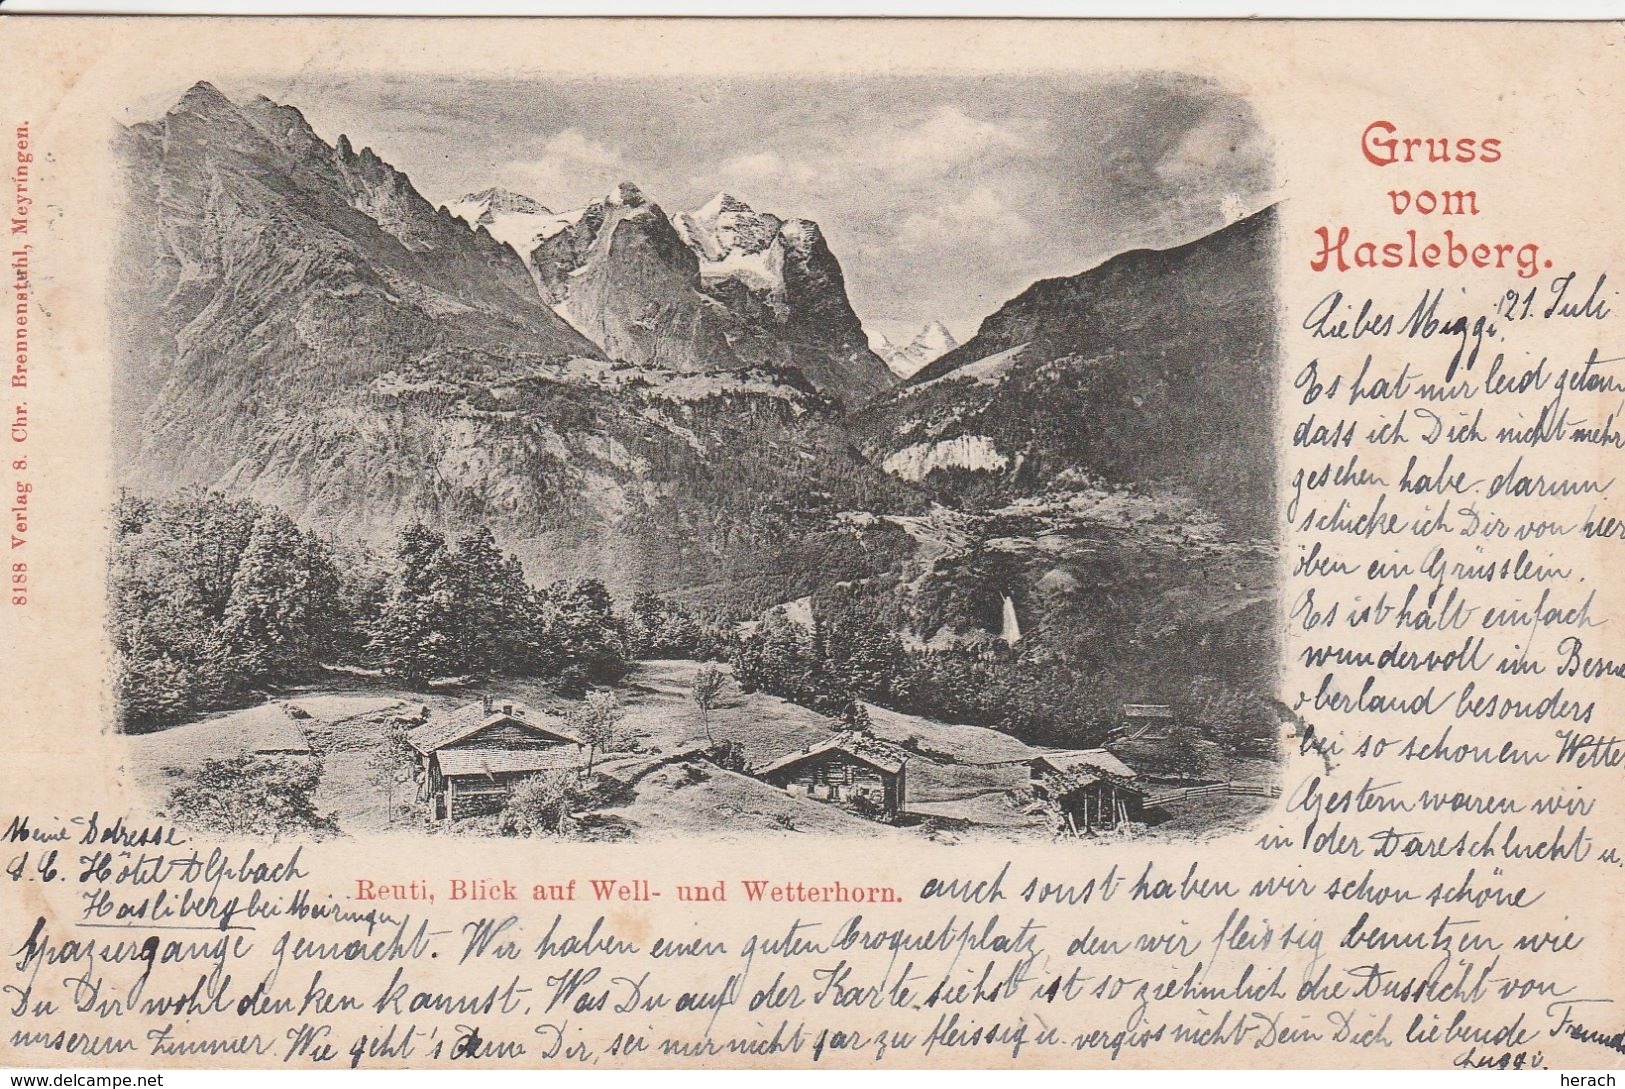 Gruss
vom
Hasleberg.
8188 Verlag 8. Chr. Brennenstuhl, Meyringen.
21. Juli
Liebes Miggi.
Es hat mir leid getan,
dass ich Dich nicht mehr
gesehen habe. darum
schicke ich Dir von hier
oben ein Grüsslein.
Es ist halt einfach
wundervoll im Berne
oberland besonders
bei so schonem Wette
Gestern waren wir
in der Aareschlucht u.
Reuti, Blick auf Well- und Wetterhorn.
auch sonst haben wir schon schöne
Spaziergange gemacht. Wir haben einen guten Croquetplatz, den wir fleissig benutzen, wie
Du Dir wohl denken kannst. Was Du auf der Karte siehst ist so ziehmlich die Aussicht von
unserem Zimmer. Wie geht's Dir, sei nur nicht gar zu fleissig u. vergiss nicht Dein Dich liebende
Meine Adresse.
Hôtel Alpbach
Hasliberg bei Meiringen
delcampe.net
herach